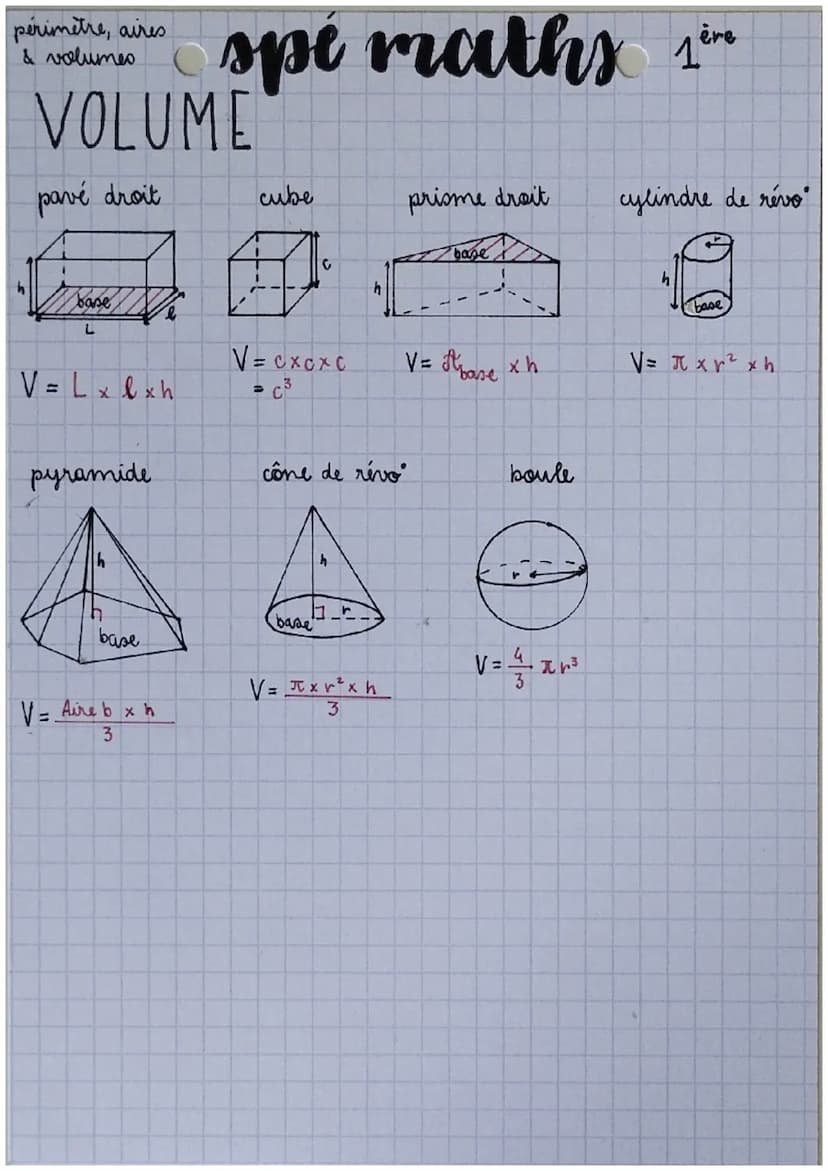 périmètre, aires
& volumes
spé maths
1ère
VOLUME
pavé droit
h
base
L
l
V = L x l x h
cube
c
V = c x c x c
= c³
prisme droit
base
h
V = 𝒜base x h
cylindre de révo°
r
h
base
V = π x r² x h
pyramide
h
base
V = Aire b x h
3
cône de révo°
h
r
base
V = π x r² x h
3
boule
r
V = 4/3 π r³